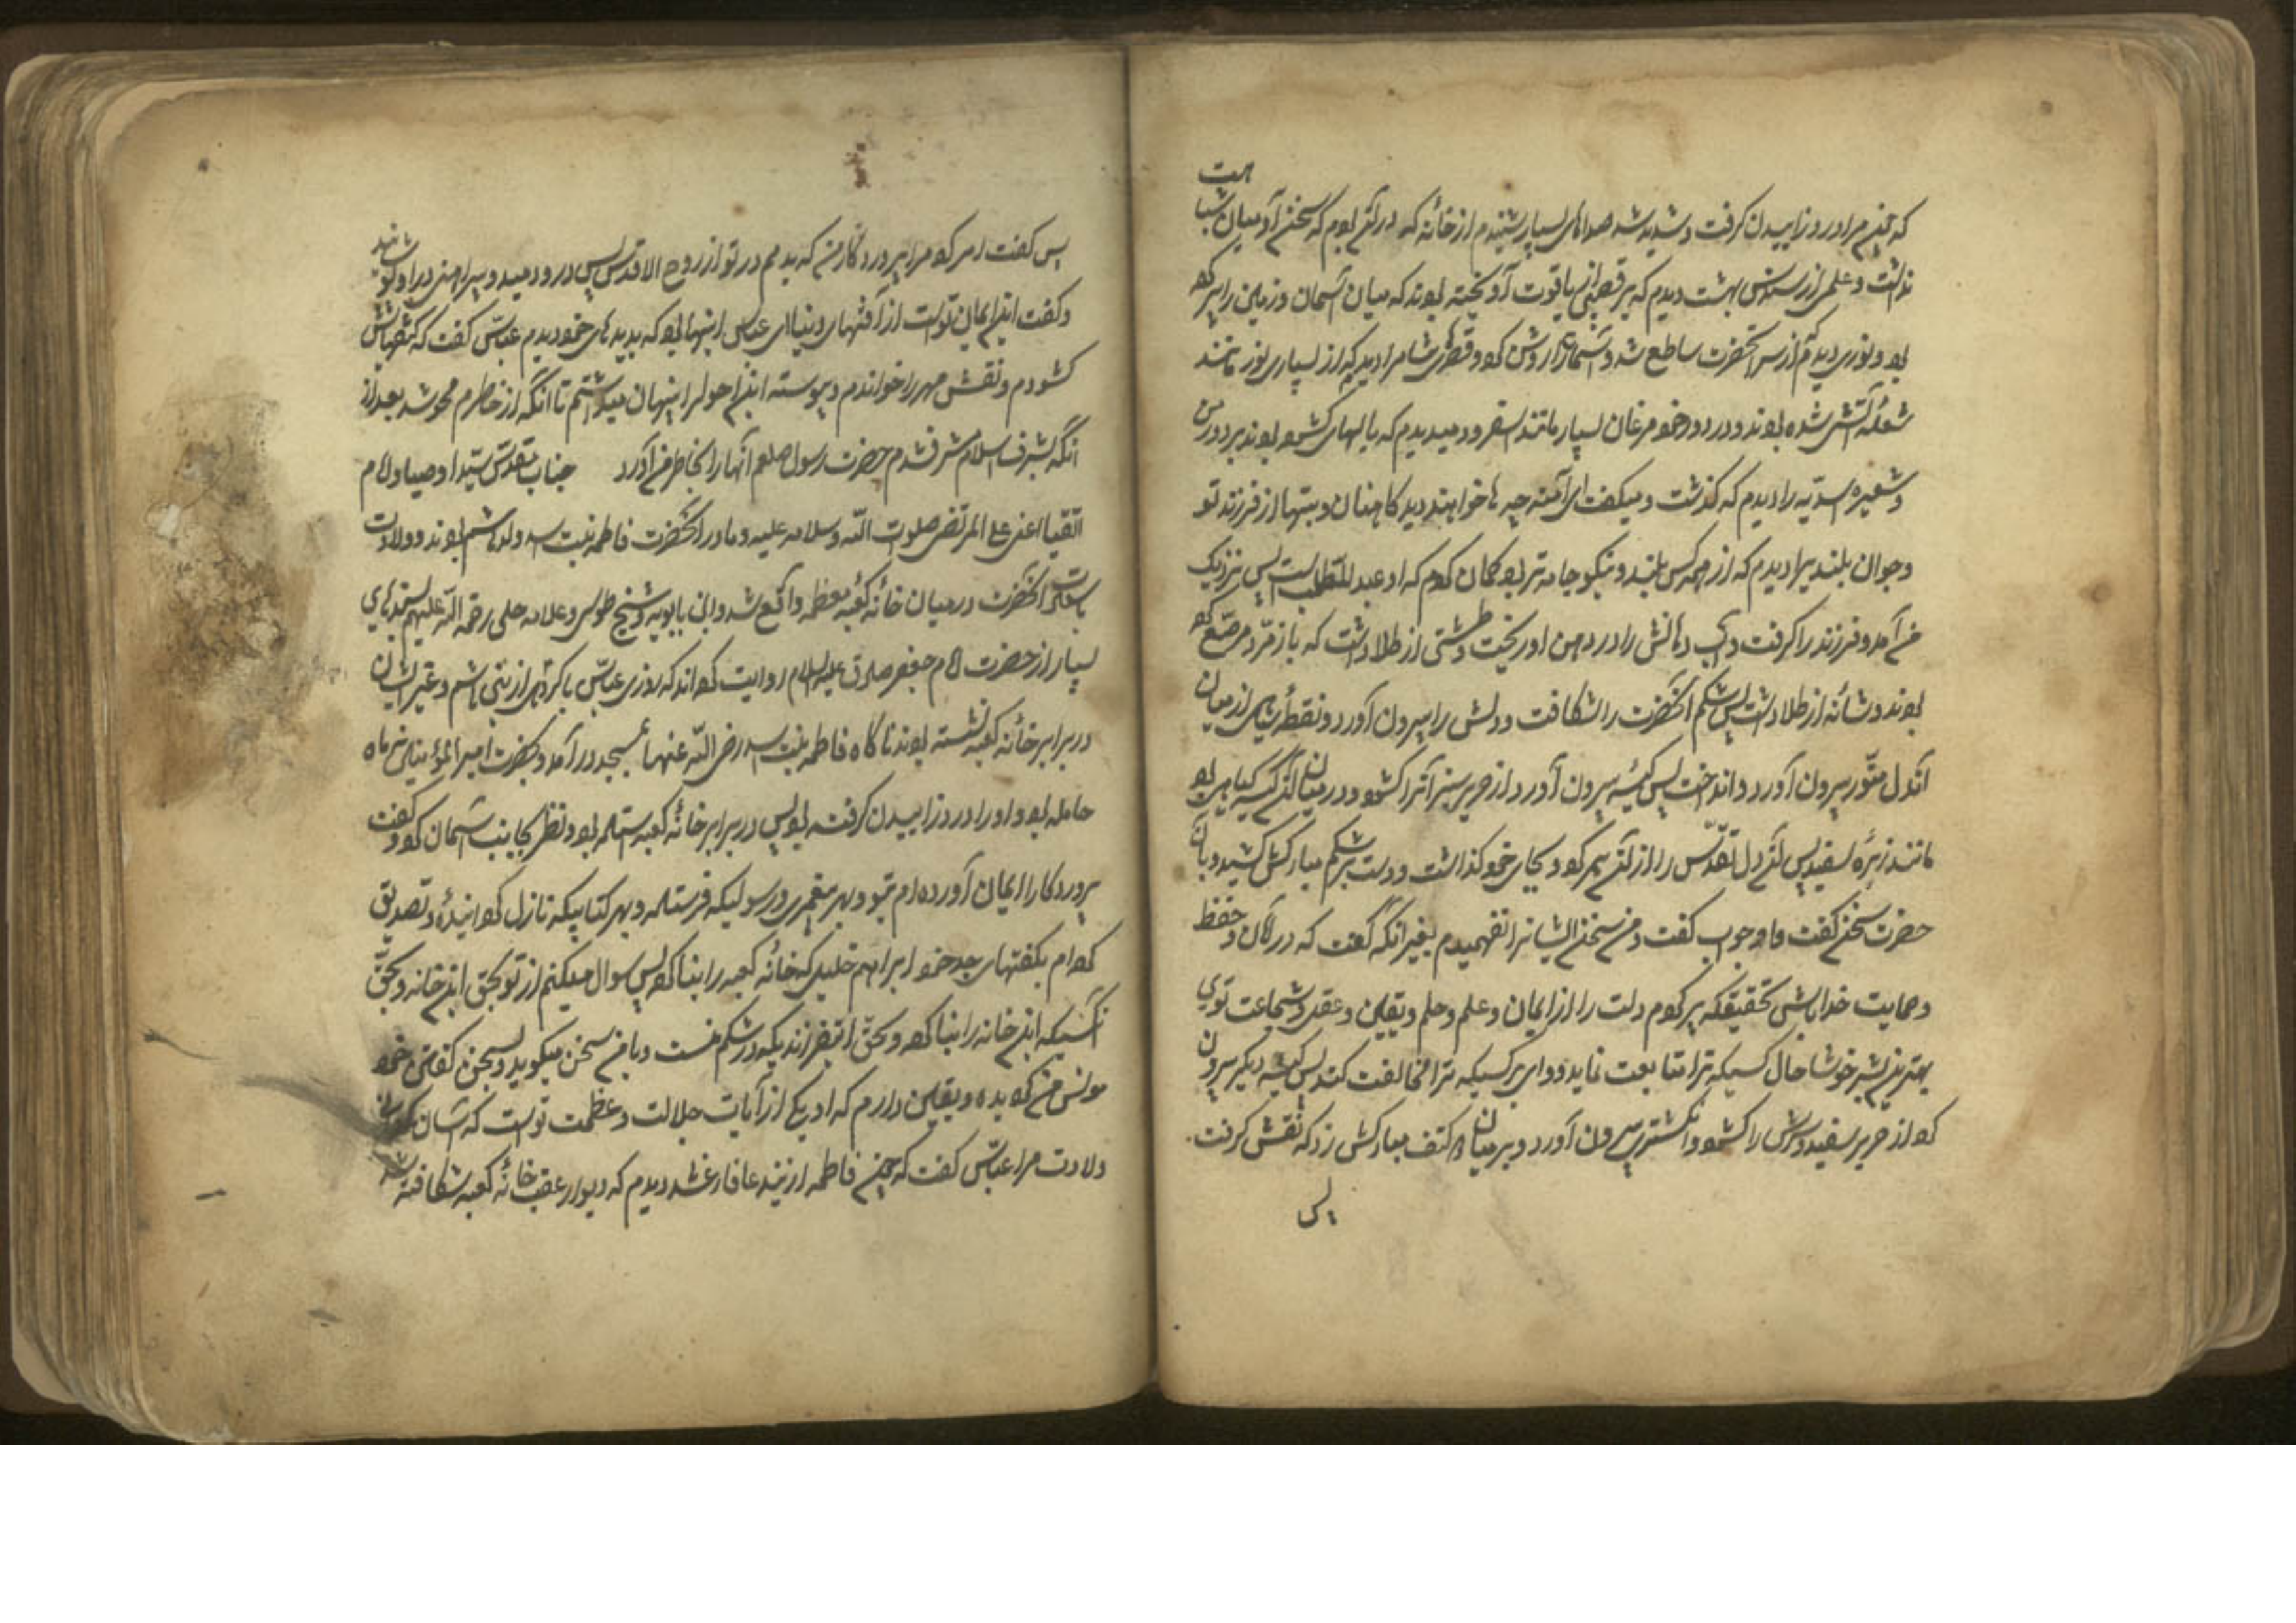 که چون مرا درد زاییدن گرفت و شدید شد صداهای بسیار شنیدم از خانهٔ که در آن بودم که بسخن آدمیان شباهت
نداشت و علمی از سندس بهشت دیدم که بر قصبی از یاقوت آویخته بودند که میان آسمان و زمین را پر کرده
بود و نوری دیدم از سر آنحضرت ساطع شد و آسمانرا روشن کرد و قصرهای شام را دیدم که از بسیاری نور مانند
شعلهٔ آتش شده بودند و در دور خود مرغان بسیار مانند اسفرود میدیدم که بالهای گشوده بودند بر دور من
و شعیره اسدیه را دیدم که گذشت و میگفت ای آمنه چه ها خواهند دید کاهنان و بتها از فرزند تو
و جوان بلندیرا دیدم که از همه کس بلند و نیکو جامه تر بود گمان کردم که او عبدالمطلب است پس نزدیک
من آمد و فرزند را گرفت و آب دهانش را در دهن او ریخت و طشتی از طلا داشت که با زمرد مرصع کرده
بودند و شانه از طلا داشت پس شکم آنحضرت را شکافت و دلش را بیرون آورد و نقطهٔ سیاهی از میان
آندل منور بیرون آورد و انداخت پس کیسهٔ بیرون آورد از حریر سبز آنرا گشود و در میان آن کیسه گیاهی بود
مانند زیرهٔ سفید پس آن دل اقدس را از آن پر کرد و بجای خود گذاشت و دست بر شکم مبارکش کشید و با آن
حضرت سخن گفت و او جواب گفت و من سخن ایشانرا نفهمیدم بغیر آنکه گفت که در امان و حفظ
و حمایت خدا باش تحقیقکه پر کردم دلت را از ایمان و علم و حلم و یقین و عقل و شجاعت توی
بهترین بشر خوشا حال کسیکه ترا متابعت نماید و وای بر کسیکه ترا مخالفت کند پس کیسه دیگر بیرون
کرد از حریر سفید و سرش را گشود و انگشتری بیرون آورد و بر میان دو کتف مبارکش زد که نقش گرفت
پس
پس گفت امر کرد مرا پروردگار من که بدمم در تو از روح الاقدس پس در او دمید و پیراهنی در او پوشانید
و گفت این ایمان تو است از آفتهای دنیا ای عباس اینها بود که بدیدهای خود دیدم عباس گفت که کتفهایش
گشودم و نقش مهر را خواندم و پیوسته این احوالرا پنهان میداشتم تا آنکه از خاطرم محو شد بعد از
آنکه بشرف اسلام مشرف شدم حضرت رسول صلعم آنها را بخاطر من آورد جناب مقدس سید اوصیا و امام
اتقیا اعنی علی المرتضی صلوات الله و سلامه علیه و مادر آنحضرت فاطمه بنت اسد ولد هاشم بودند و ولادت
باسعادت آنحضرت در میان خانه کعبه معظمه واقع شد و ابن بابویه و شیخ طوسی و علامه حلی رحمة الله علیهم بسندهای
بسیار از حضرت امام جعفر صادق علیه السلام روایت کرده اند که روزی عباس با گروهی از بنی هاشم و غیر ایشان
در برابر خانه کعبه نشسته بودند ناگاه فاطمه بنت اسد رضی الله عنها بمسجد در آمد و بحضرت امیرالمؤمنین نه ماه
حامله بود و او را درد زاییدن گرفته بود پس در برابر خانهٔ کعبه ایستاده بود و نظر بجانب آسمان کرد و گفت
پروردگارا ایمان آورده ام بتو و بهر پیغمبری و رسولیکه فرستاده و بهر کتابیکه نازل کرده و تصدیق
کرده ام بگفتهای جد خود ابراهیم خلیل که خانه کعبه را بنا کرده پس سوال میکنم از تو بحق این خانه و بحق
آنکسیکه این خانه را بنا کرده و بحق این فرزندیکه در شکم منست و با من سخن میگوید و بسخن گفتن خود
مونس من گردیده و یقین دارم که او یکی از آیات جلالت و عظمت تو است که آسان کن
ولادت مرا عباس گفت که چون فاطمه از این دعا فارغ شد دیدم که دیوار عقب خانهٔ کعبه شکافته شد